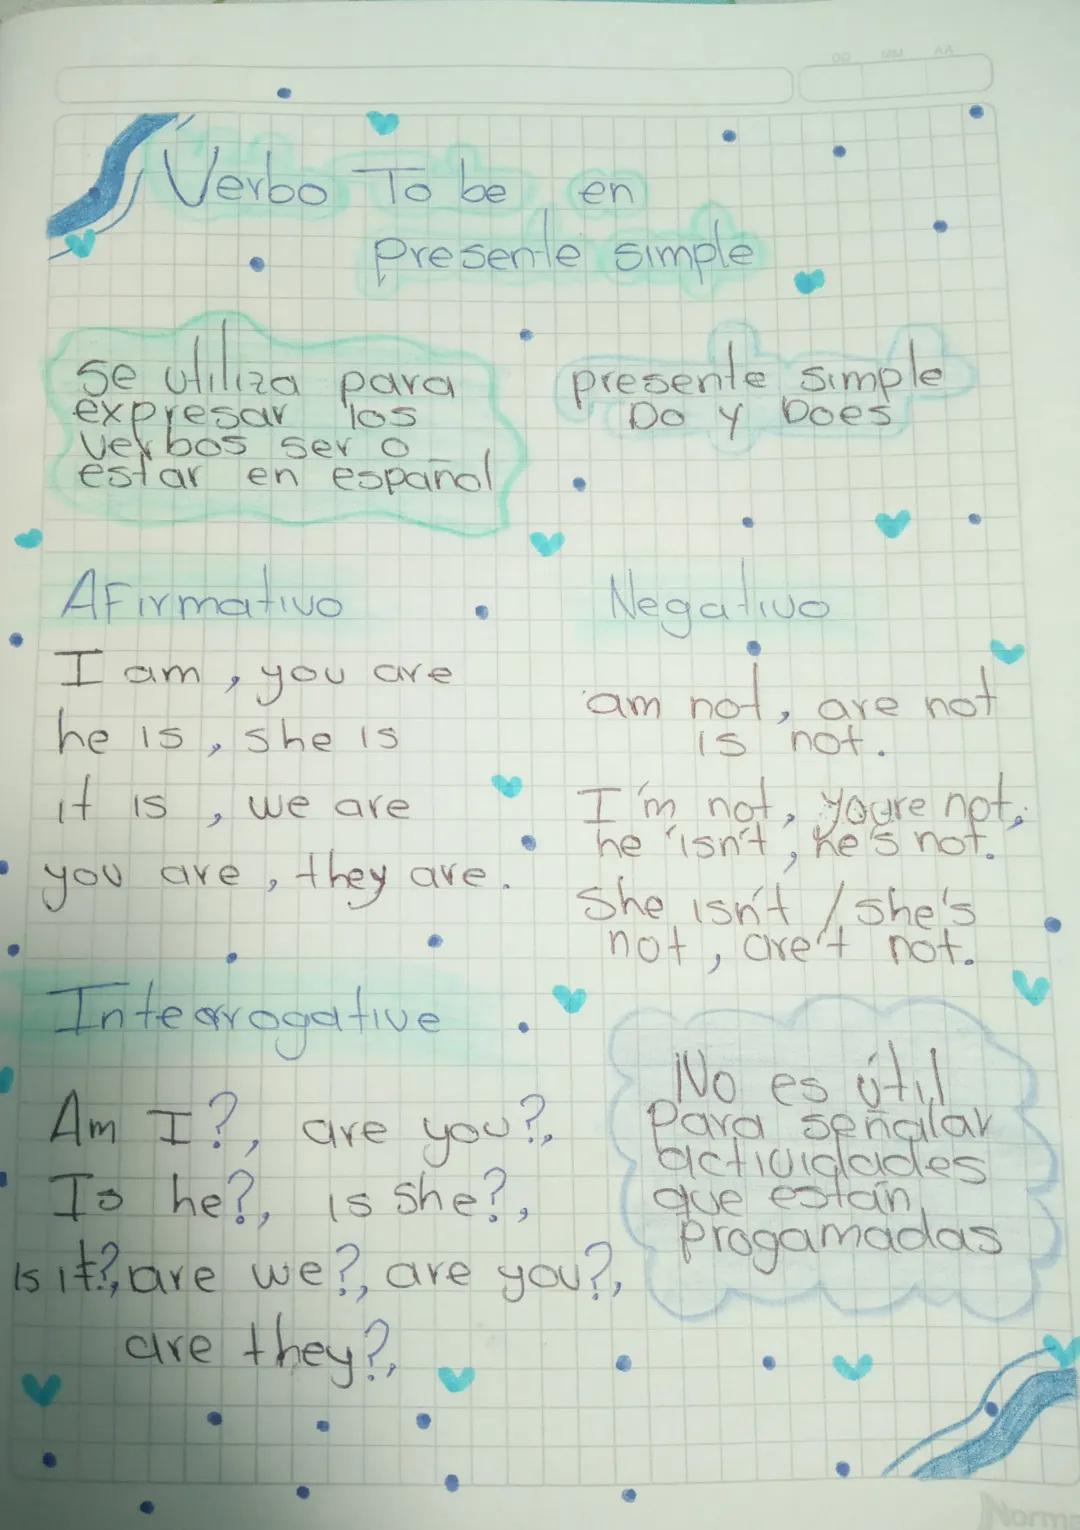 DD MM AA
Verbo To be en
presente simple
se utiliza para
expresar los
verbos ser o
estar en español
presente simple
Do y Does
Afirmativo
I am, you are
he is, she is
it is, we are
you are, they are.
Negativo
am not, are not
is not.
I'm not, youre not,
he isn't, he's not.
She isn't / she's
not, are't not.
Interrogative
Am I?, are you?,
Is he?, is she?,
is it?, are we?, are you?,
are they?,
No es útil
para señalar
actividades
que están
progamadas
Norma